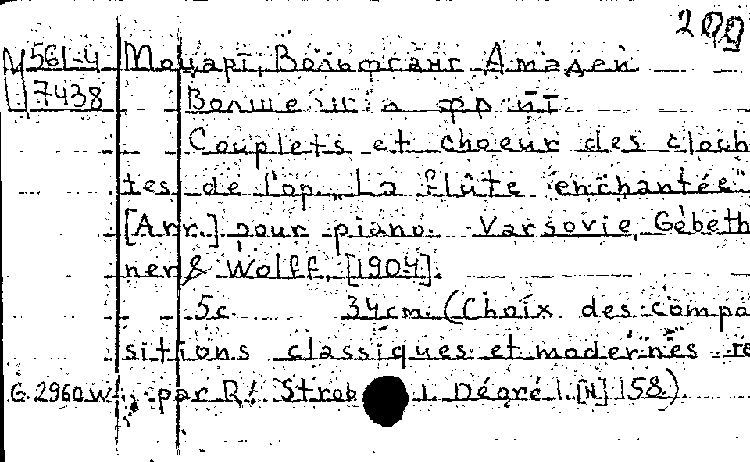 299
М 561-4 Моцарт, Вольфганг Амадей
7438
Couplets et choeur des cloch
tes de l'op. „La flûte enchantée"
[Arr.] pour piano. Varsovie, Gebeth
ner & Wolff, [1904].
5c. 34cm. (Choix des compo
sitions classiques et modernes re
G. 2960 W. par R. Strob I. Dégré I. [N] 158.)